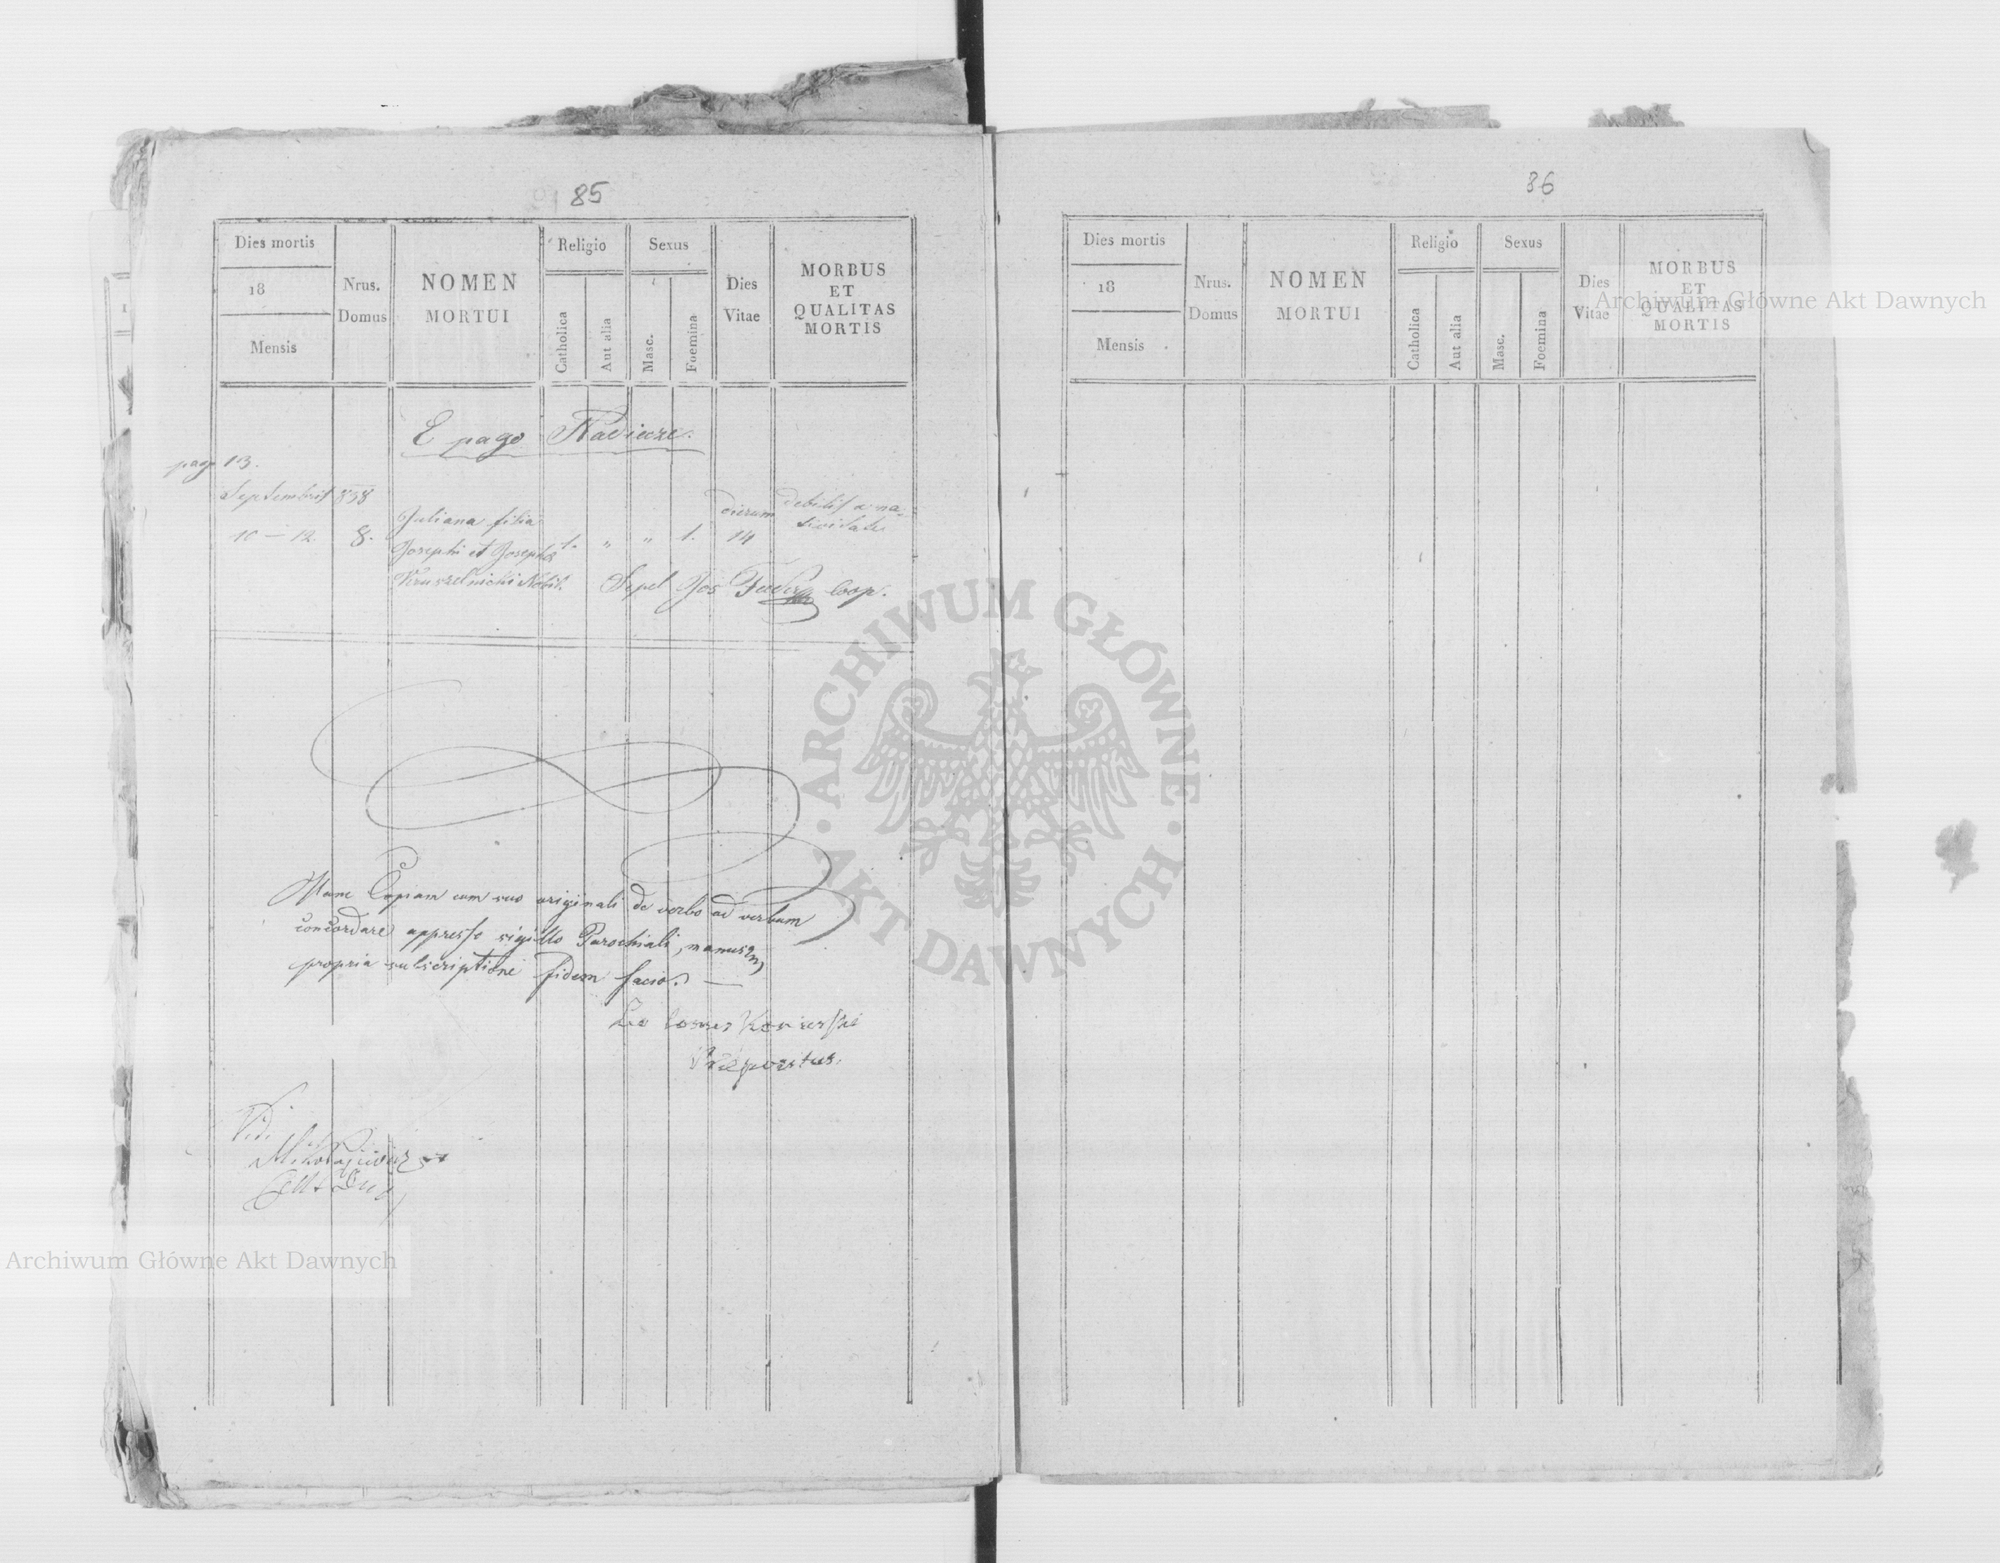 85
Dies mortis
18
Mensis
Nrus.
Domus
NOMEN
MORTUI
Religio
Catholica
Aut alia
Sexus
Masc.
Foemina
Dies
Vitae
MORBUS
ET
QUALITAS
MORTIS
E pago
pag 13.
Septembris 858
10 — 12. 8.
Juliana filia
Josephi et Josephae
1. " " 1.
dierum
14
debilis a na-
tivitate
Sepel Jos coop.
Hanc Copiam cum suo originali de verbo ad verbum
concordare appresso sigillo Parochiali, manusq
propria subscriptione fidem facio. —
Praepositus.
Vidi
86
Dies mortis
18
Mensis
Nrus.
Domus
NOMEN
MORTUI
Religio
Catholica
Aut alia
Sexus
Masc.
Foemina
Dies
Vitae
MORBUS
ET
QUALITAS
MORTIS
Archiwum Główne Akt Dawnych
ARCHIWUM GŁÓWNE
AKT DAWNYCH
Archiwum Główne Akt Dawnych